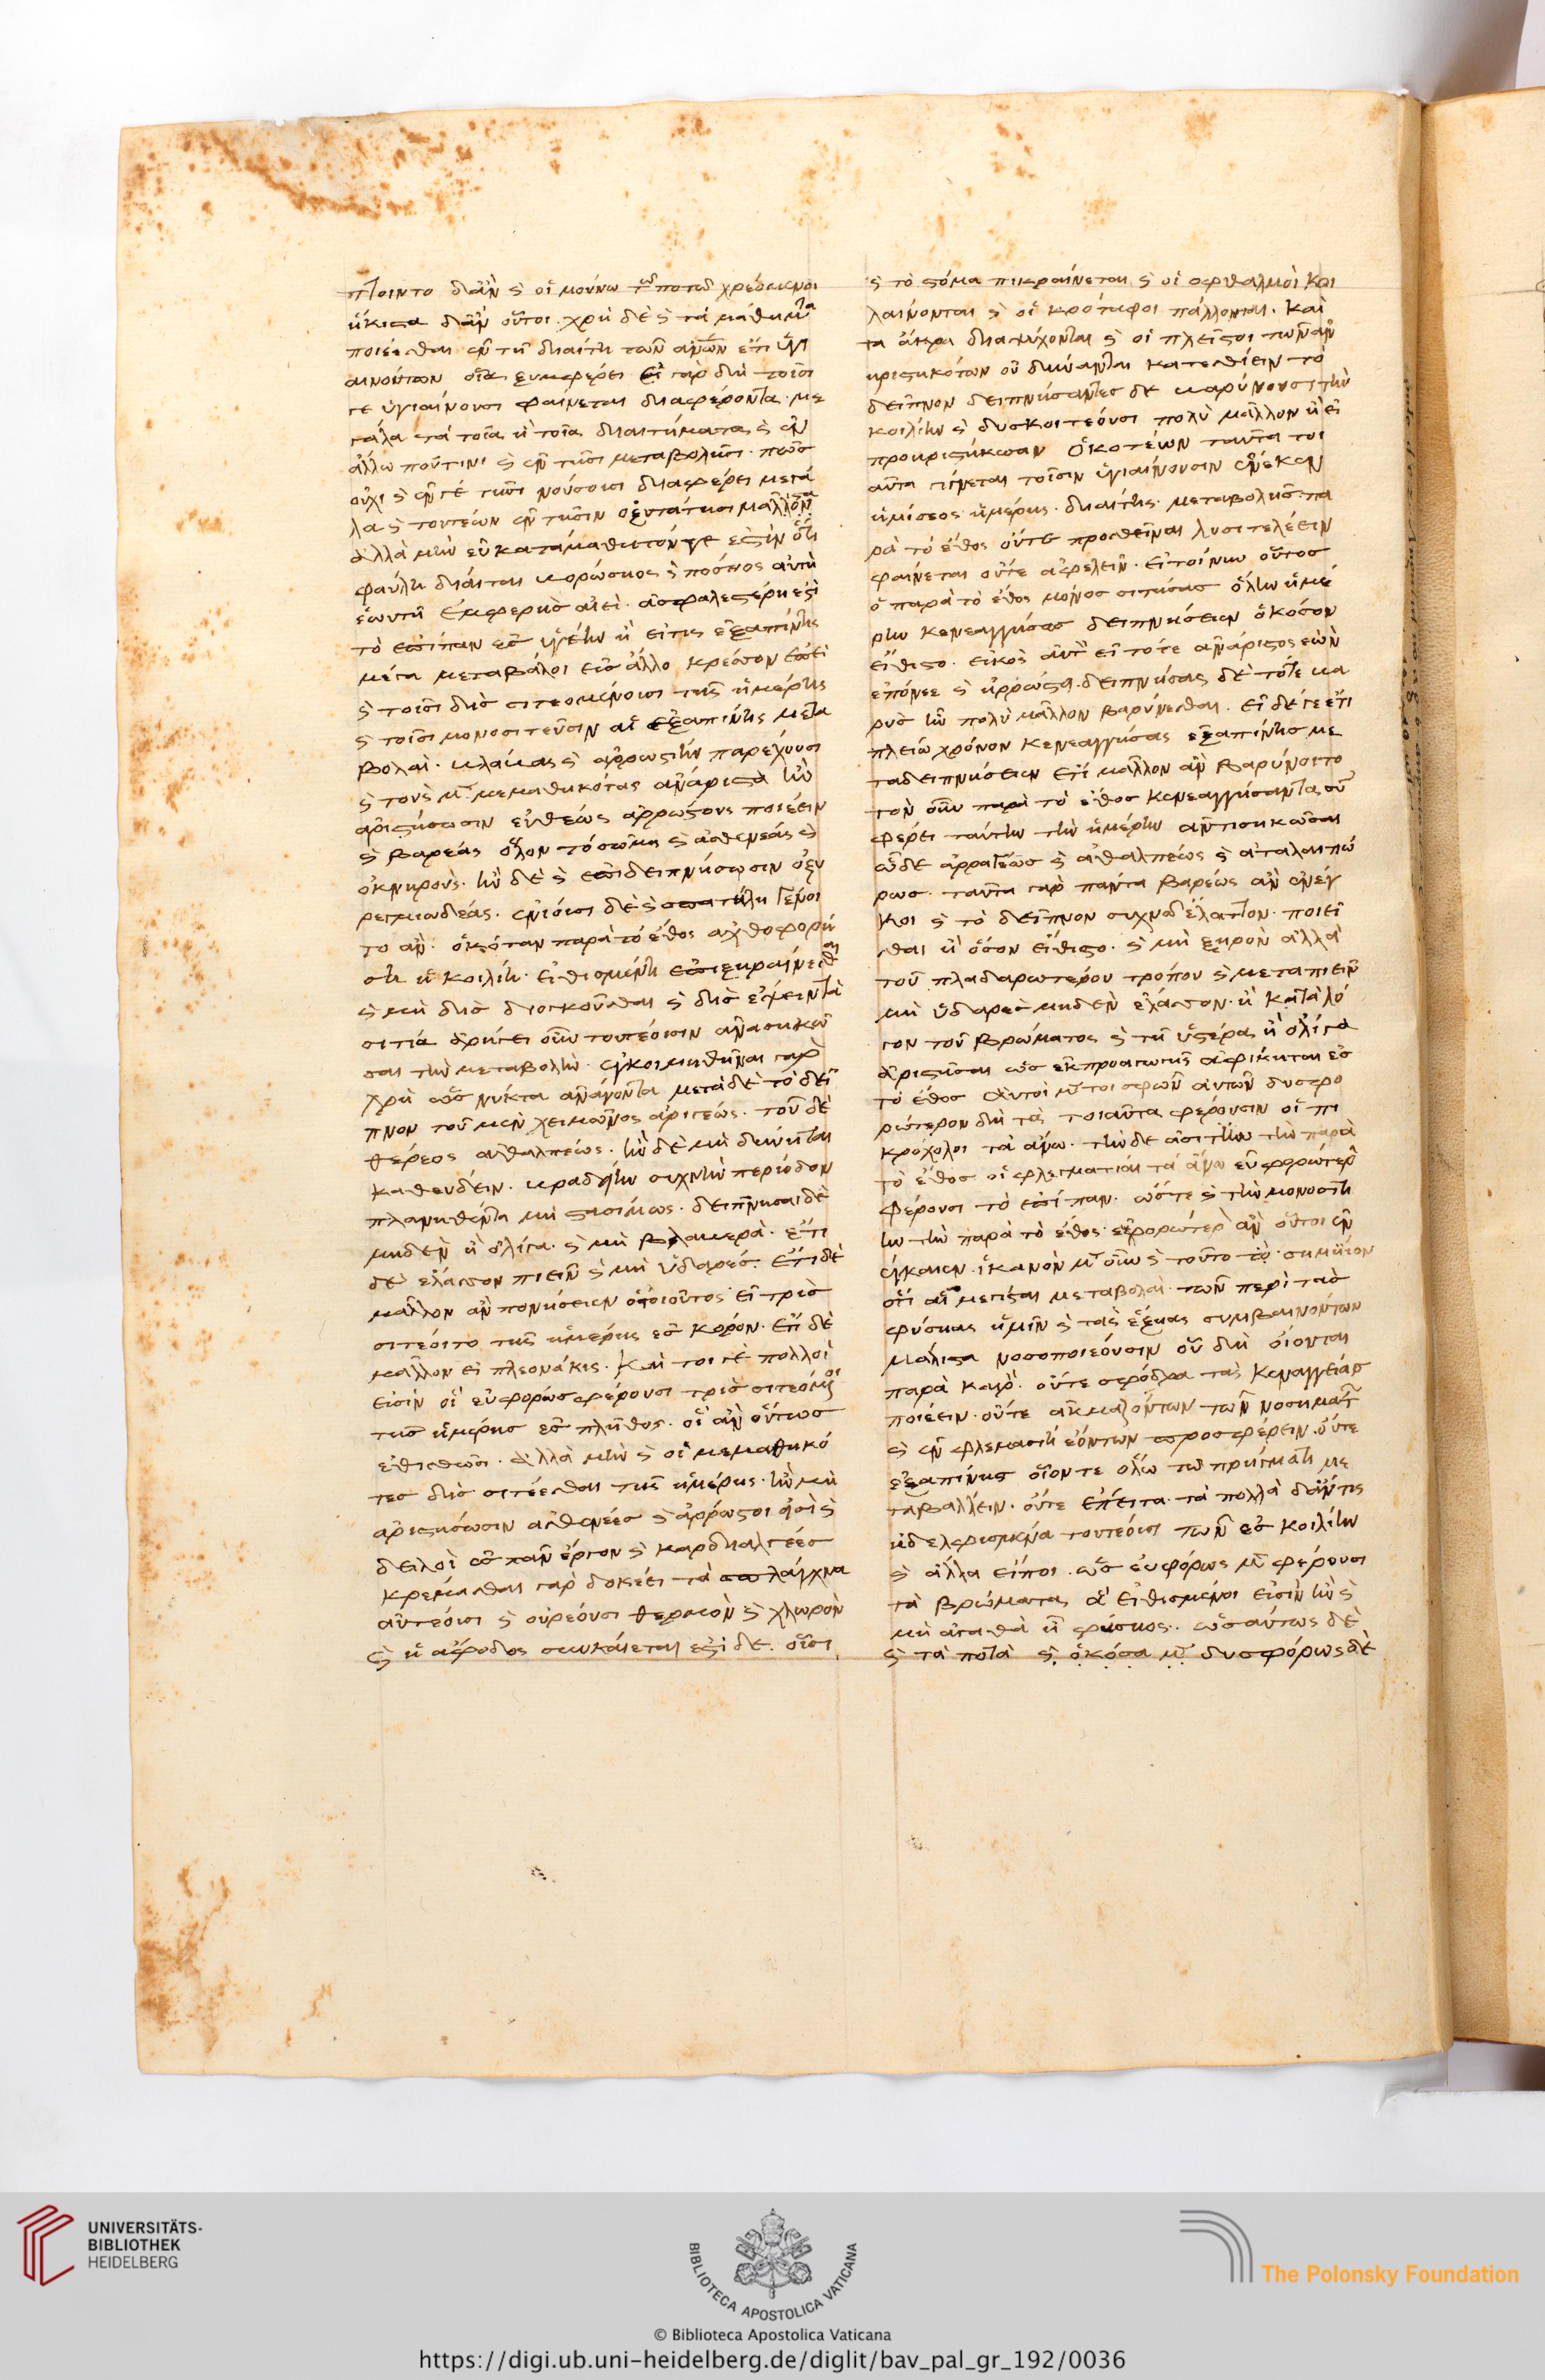 πτοιντο δ' ἂν ϗ οἱ μούνω τῶ ποτῶ χρεόμενοι
ἥκιστα δ' ἂν οὗτοι. χρὴ δὲ ϗ τὰ μαθήματα
ποιέεσθαι ἐν τῆ διαίτη τῶν ἀνῶν ἔτι ὑγι
αινόντων οἷα ξυμφέρει εἰ γὰρ δὴ τοῖσι
γε ὑγιαίνουσι φαίνεται διαφέροντα με
γάλα τὰ τοῖα ἢ τοῖα διαιτήματα ϗ ἐν
ἄλλω πού τινι ϗ ἐν τῆσι μεταβολῆσι. πῶς
οὐχὶ ϗ ἔν γε τῆσι νούσοισι διαφέρει μεγά
λα ϗ τουτέων ἐν τῆσιν ὀξυτάτησι μάλλον
ἀλλὰ μὴν εὐκαταμάθητόν γε ἐστὶν ὅτι
φαύλη δίαιτα βρώσιος ϗ πόσιος αὐτὴ
ἑωυτῆ ἐμφερὴς αἰεὶ. ἀσφαλεστέρη ἐστὶ
τὸ ἐπίπαν ἐς ὑγιείην ἢ εἴ τις ἐξαπίνης
μέγα μεταβάλοι εἰς ἄλλο κρέσσον ἐπεὶ
ϗ τοῖσι δὶς σιτεομένοισι τῆς ἡμέρης
ϗ τοῖσι μονοσιτεῦσιν αἱ ἐξαπίνης μετα
βολαὶ. βλάβας ϗ ἀρρωστίην παρέχουσι
ϗ τοὺς μὴ μεμαθηκότας ἀνάριστα ἢν
ἀριστήσωσιν εὐθέως ἀρρώστους ποιέειν
ϗ βαρέας ὅλον τὸ σῶμα ϗ ἀσθενέας ϗ
ὀκνηρούς. ἢν δὲ ϗ ἐπιδειπνήσωσιν ὀξυ
ρεγμιώδεας. ἐνίοισι δὲ ϗ σπατίλη γένοι
το ἂν. ὁκόταν παρὰ τὸ ἔθος ἀχθοφορή
ση ἡ κοιλίη. εἰθισμένη ἐπιξηραίνεσθαι
ϗ μὴ δὶς διογκοῦσθαι ϗ δὶς ἕψειν τὰ
σιτία ἀρήγει οὖν τουτέοισιν ἀνασηκῶ
σαι τὴν μεταβολὴν. ἐγκοιμηθῆναι γὰρ
χρὴ ὡς νύκτα ἀνάγοντα μετὰ δὲ τὸ δεῖ
πνον τοῦ μὲν χειμῶνος ἀριγέως. τοῦ δὲ
θέρεος ἀθαλπέως. ἢν δὲ μὴ δύνηται
καθεύδειν. βραδείην συχνὴν περίοδον
πλανηθέντα μὴ στασίμως. δειπνῆσαι δὲ
μηδὲν ἢ ὀλίγα. ϗ μὴ βλαβερὰ. ἔτι
δὲ ἔλασσον πιεῖν ϗ μὴ ὑδαρές. ἔτι δὲ
μᾶλλον ἂν πονήσειεν ὁ τοιοῦτος εἰ τρὶς
σιτέοιτο τῆς ἡμέρης ἐς κόρον. ἔτι δὲ
μᾶλλον εἰ πλεονάκις. καί τοι γε πολλοὶ
εἰσὶν οἳ εὐφόρως φέρουσι τρὶς σιτεόμενοι
τῆς ἡμέρης ἐς πλῆθος. οἳ ἂν οὕτως
ἐθισθῶσι. ἀλλὰ μὴν ϗ οἱ μεμαθηκό
τες δὶς σιτέεσθαι τῆς ἡμέρης. ἢν μὴ
ἀριστήσωσιν ἀσθενέες ϗ ἄρρωστοι εἰσὶ ϗ
δειλοὶ ἐς πᾶν ἔργον ϗ καρδιαλγέες
κρέμασθαι γὰρ δοκέει τὰ σπλάγχνα
αὐτέοισι ϗ οὐρέουσι θερμὸν ϗ χλωρὸν
ϗ ἡ ἄφοδος συγκαίεται ἔστι δὲ. οἷσι
ϗ τὸ στόμα πικραίνεται ϗ οἱ ὀφθαλμοὶ κοι
λαίνονται ϗ οἱ κρόταφοι πάλλονται. καὶ
τὰ ἄκρα διαψύχονται ϗ οἱ πλεῖστοι τῶν ἀν
ηριστηκότων οὐ δύνανται κατεσθίειν τὸ
δεῖπνον δειπνήσαντες δὲ βαρύνουσι τὴν
κοιλίην ϗ δυσκοιτέουσι πολὺ μᾶλλον ἢ εἰ
προηριστήκεσαν ὁκοτέων ταῦτα τοι
αῦτα γίνεται τοῖσιν ὑγιαίνουσιν ἕνεκεν
ἡμίσεος ἡμέρης. διαίτης. μεταβολῆς. πα
ρὰ τὸ ἔθος οὔτε προσθεῖναι λυσιτελέειν
φαίνεται οὔτε ἀφελεῖν. εἰ τοίνυν οὗτος
ὁ παρὰ τὸ ἔθος μόνος σιτήσας ὅλην ἡμέ
ρην κενεαγγήσας δειπνήσειεν ὁκόσον
εἴθιστο. εἰκὸς αὐτὸν εἰ τότε ἀνάριστος ἐὼν
ἐπόνεε ϗ ἠρρώστει. δειπνήσας δὲ τότε βα
ρὺς ἦν πολὺ μᾶλλον βαρύνεσθαι. εἰ δέ γε ἔτι
πλείω χρόνον κενεαγγήσας ἐξαπίνης με
ταδειπνήσειεν ἔτι μᾶλλον ἂν βαρύνοιτο
τὸν οὖν παρὰ τὸ ἔθος κενεαγγήσαντα συμ
φέρει ταύτην τὴν ἡμέρην ἀντισηκῶσαι
ὧδε ἀρριγέως ϗ ἀθαλπέως ϗ ἀταλαιπώ
ρως. ταῦτα γὰρ πάντα βαρέως ἂν ἐνέγ
κοι ϗ τὸ δεῖπνον συχνῶ ἔλασσον. ποιεῖ
σθαι ἢ ὅσον εἴθιστο. ϗ μὴ ξηρὸν ἀλλὰ
τοῦ πλαδαρωτέρου τρόπου ϗ μεταπιεῖν
μὴ ὑδαρὲς μηδὲν ἔλασσον. ἢ κατὰ λό
γον τοῦ βρώματος ϗ τῆ ὑστέρα ἢ ὀλίγα
ἀριστῆσαι ὡς ἐκ προαγωγῆς ἀφίκηται ἐς
τὸ ἔθος αὐτοὶ μέντοι σφῶν αὐτῶν δυσφο
ρώτερον δὴ τὰ τοιαῦτα φέρουσιν οἱ πι
κρόχολοι τὰ ἄνω. τὴν δὲ ἀσιτίην τὴν παρὰ
τὸ ἔθος οἱ φλεγματίαι τὰ ἄνω εὐφορώτερον
φέρουσι τὸ ἐπίπαν. ὥστε ϗ τὴν μονοσιτί
ην τὴν παρὰ τὸ ἔθος. εὐφορώτερον ἂν οὗτοι ἐν
έγκαιεν. ἱκανὸν μὲν οὖν ϗ τοῦτο τὸ. σημήϊον
ὅτι αἱ μέγισται μεταβολαὶ. τῶν περὶ τὰς
φύσιας ἡμῖν ϗ τὰς ἕξιας συμβαινόντων
μάλιστα νοσοποιέουσιν οὐ δὴ οἷόν τε
παρὰ καιρὸν. οὔτε σφόδρα τὰς κενεαγγείας
ποιέειν. οὔτε ἀκμαζόντων τῶν νοσημάτων
ϗ ἐν φλεμασίη ἐόντων προσφέρειν. οὔτε
ἐξαπίνης οἷόν τε ὅλω τῶ πρήγματι με
ταβάλλειν. οὔτε ἔπειτα. τὰ πολλὰ δ' ἄν τις
ἠδελφισμένα τουτέοισι τῶν ἐς κοιλίην
ϗ ἄλλα εἴποι. ὡς εὐφόρως μὲν φέρουσι
τὰ βρώματα ἃ εἰθισμένοι εἰσὶν ἢν ϗ
μὴ ἀγαθὰ ἢ φύσιος.. ὡσαύτως δὲ
ϗ τὰ ποτὰ ϗ ὁκόσα μὲν δυσφόρως δὲ
UNIVERSITÄTS-
BIBLIOTHEK
HEIDELBERG
BIBLIOTECA APOSTOLICA VATICANA
The Polonsky Foundation
© Biblioteca Apostolica Vaticana
https://digi.ub.uni-heidelberg.de/diglit/bav_pal_gr_192/0036